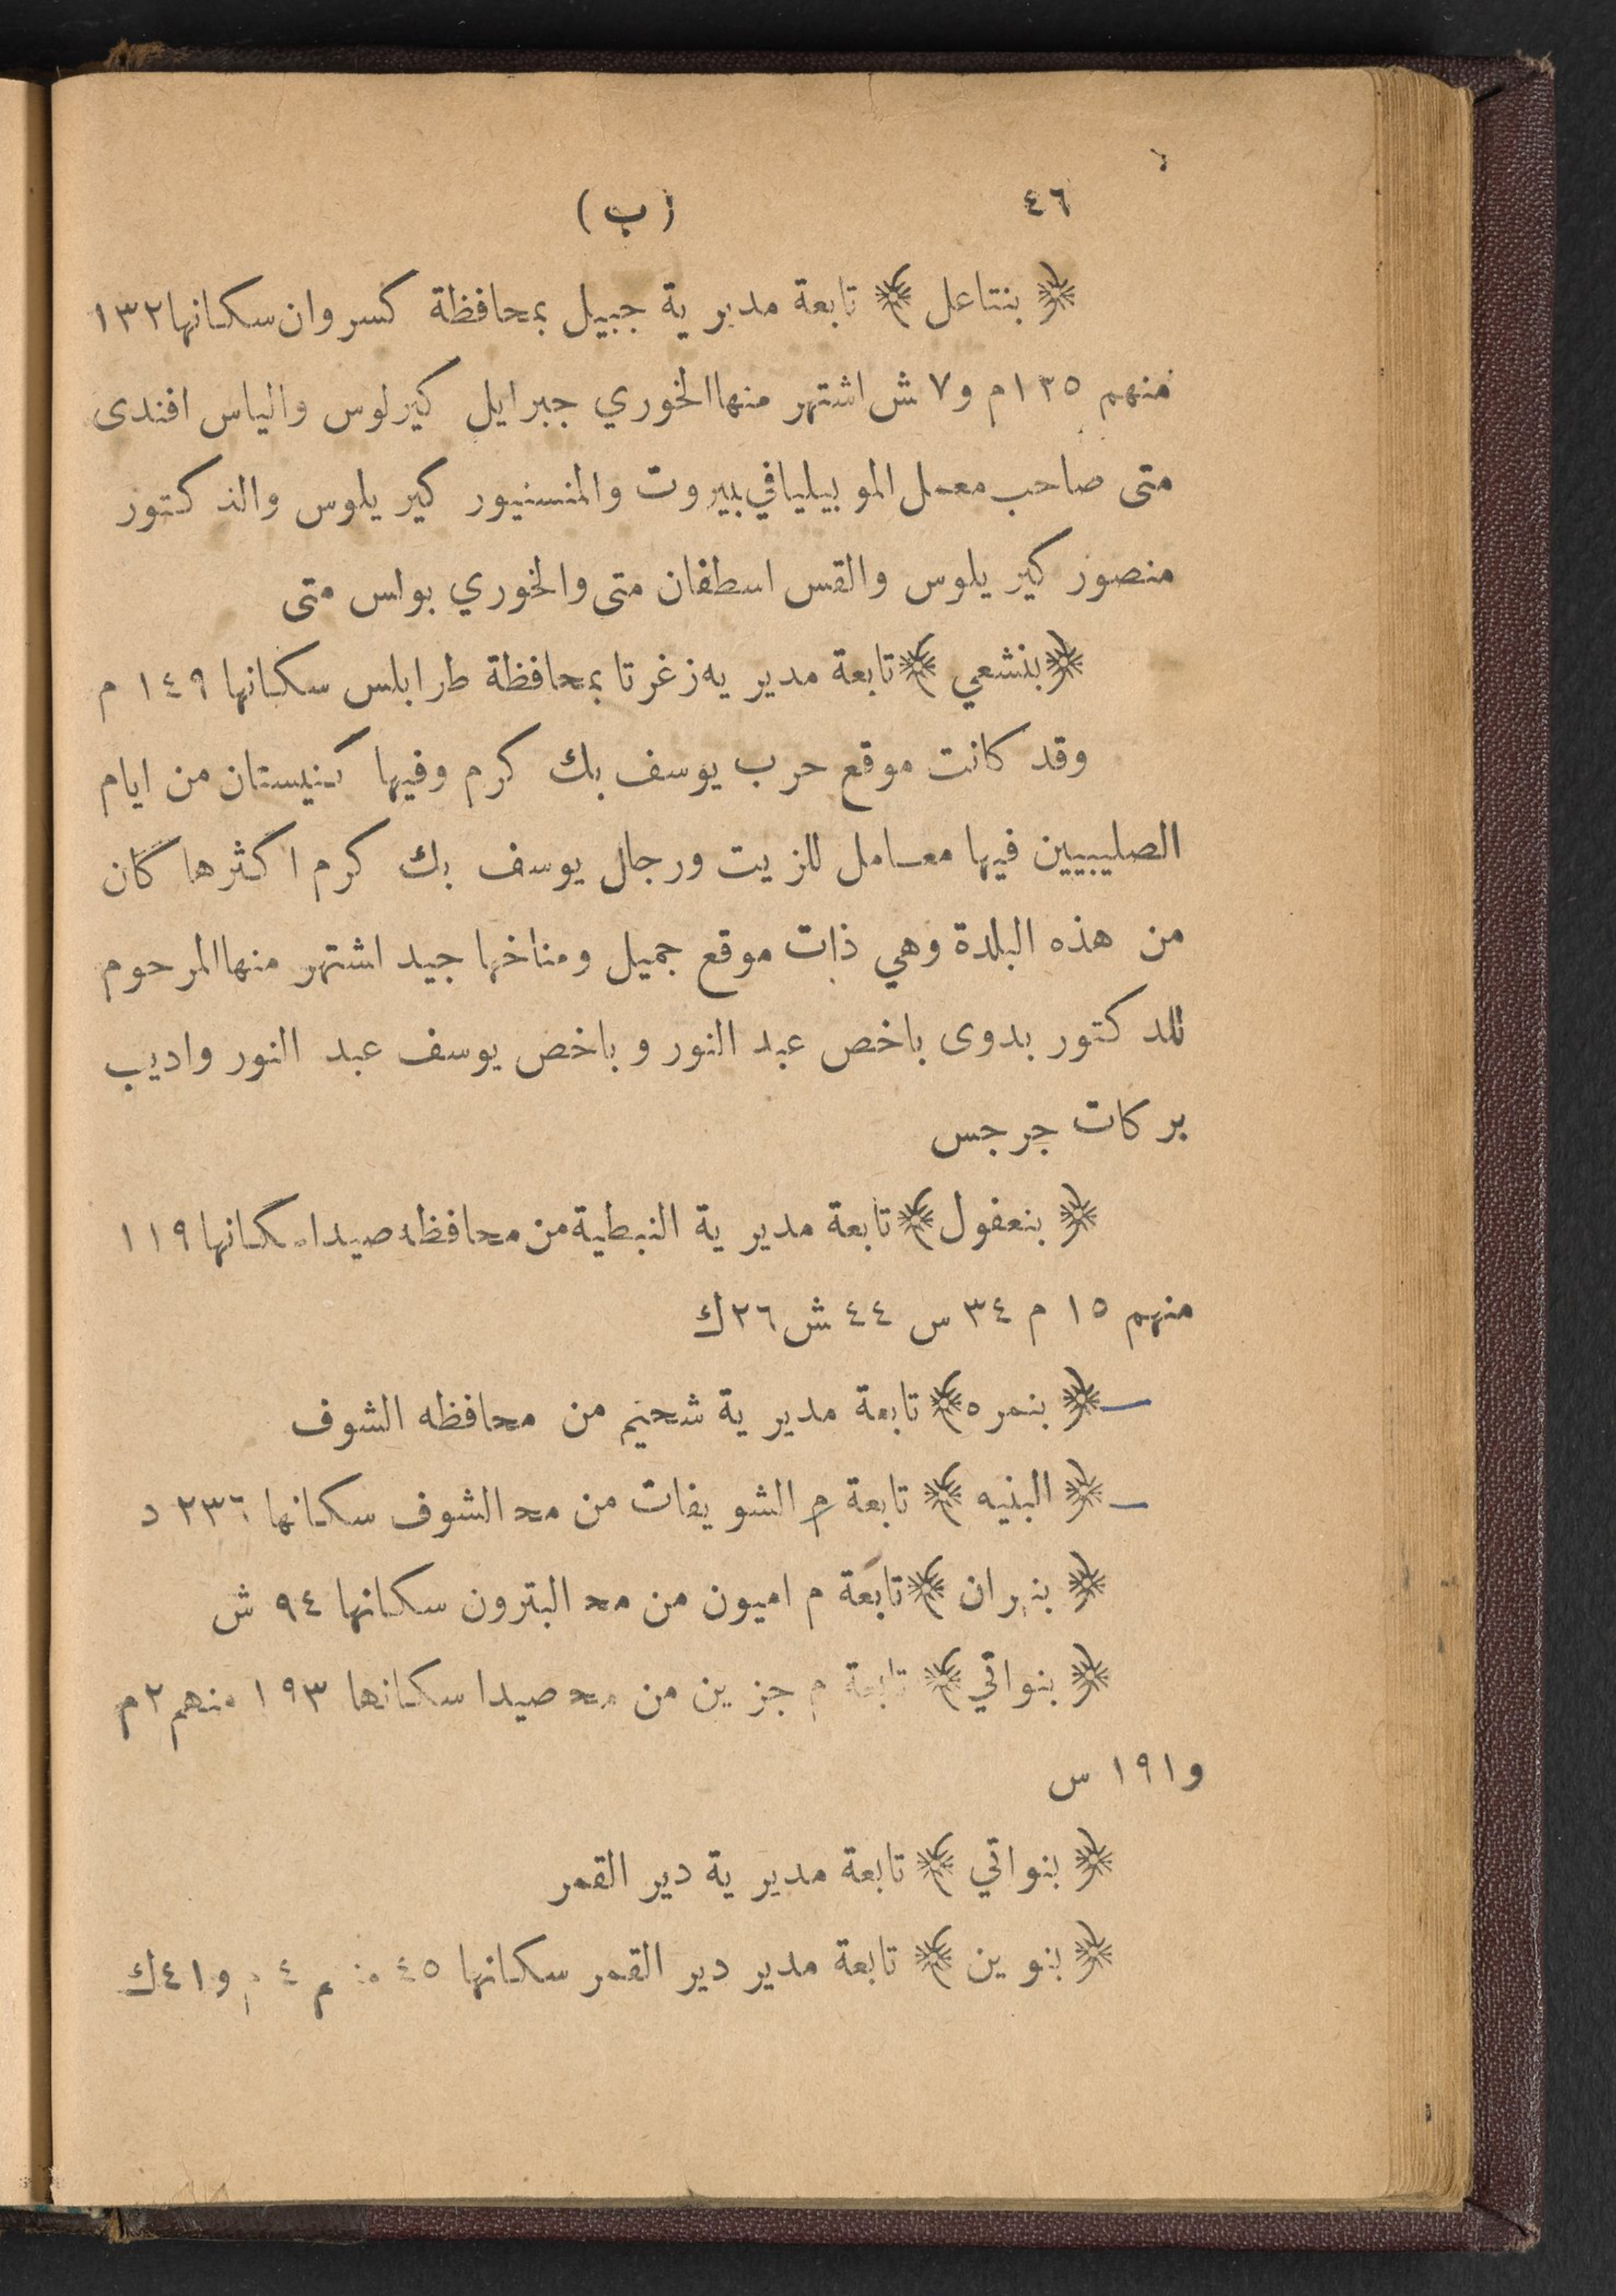 ٤٦ (ب)
﴿ بنتاعل ﴾ تابعة مديرية جبيل بمحافظة كسروان سكانها ١٣٢
منهم ١٢٥م و٧ ش اشتهر منها الخوري جبرايل كيرلوس والياس افندى
متى صاحب معمل الموبيليا في بيروت والمنسنيور كيريلوس والدكتور
منصور كيريلوس والقس اسطفان متى والخوري بولس متى
﴿ بنشعي ﴾ تابعة مديريه زغرتا بمحافظة طرابلس سكانها ١٤٩ م
وقد كانت موقع حرب يوسف بك كرم وفيها كنيستان من ايام
الصليبيين فيها معامل للزيت ورجال يوسف بك كرم اكثرها كان
من هذه البلدة وهي ذات موقع جميل ومناخها جيد اشتهر منها المرحوم
للدكتور بدوى باخص عبد النور وباخص يوسف عبد النور واديب
بركات جرجس
﴿ بنعفول ﴾ تابعة مديرية النبطية من محافظه صيدا سكانها ١١٩
منهم ١٥ م ٣٤ س ٤٤ ش ٢٦ ك
﴿ بنمره ﴾ تابعة مديرية شحيم من محافظه الشوف
﴿ البنيه ﴾ تابعة م الشويفات من مح الشوف سكانها ٢٣٦ د
﴿ بنهران ﴾ تابعة م اميون من مح البترون سكانها ٩٤ ش
﴿ بنواتي ﴾ تابعة م جزين من مح صيدا سكانها ١٩٣ منهم ٢ م
و١٩١ س
﴿ بنواتي ﴾ تابعة مديرية دير القمر
﴿ بنوين ﴾ تابعة مدير دير القمر سكانها ٤٥ منهم ٤ م و٤١ ك